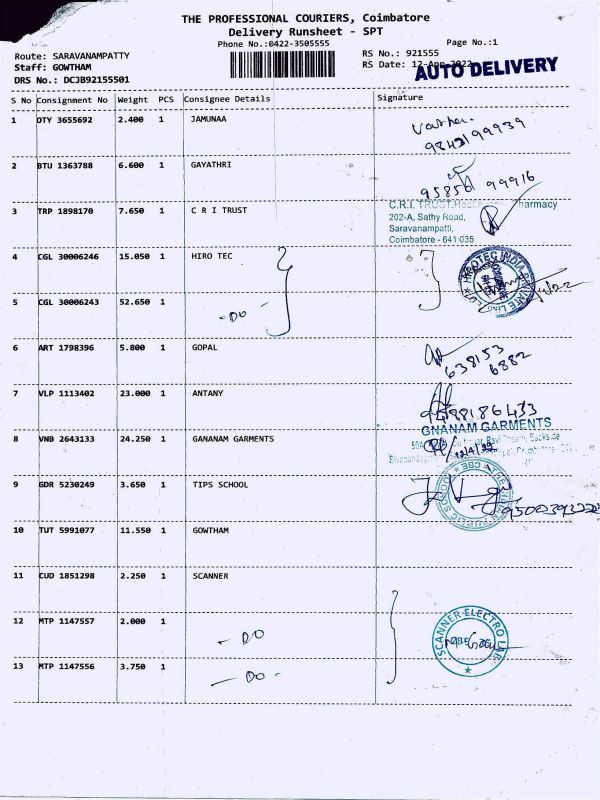 THE PROFESSIONAL COURIERS, Coimbatore
Delivery Runsheet - SPT
Phone No.:0422-3505555
Page No.:1
Route: SARAVANAMPATTY
RS No.: 921555
Staff: GOWTHAM
RS Date: 12-Apr-2022
AUTO DELIVERY
DRS No.: DCJB92155501
S No Consignment No Weight PCS Consignee Details Signature
1 DTY 3655692 2.400 1 JAMUNAA
9843199939
2 BTU 1363788 6.600 1 GAYATHRI
99916
3 TRP 1898170 7.650 1 C R I TRUST
C.R.I. TRUST Pharmacy
202-A, Sathy Road,
Saravanampatti,
Coimbatore - 641 035
4 CGL 30006246 15.050 1 HIRO TEC
HIROTEC INDIA PRIVATE
5 CGL 30006243 52.650 1
-DO-
6 ART 1798396 5.800 1 GOPAL
638153
6882
7 VLP 1113402 23.000 1 ANTANY
GNANAM GARMENTS
8 VNB 2643133 24.250 1 GANANAM GARMENTS
12/4/22
9 GDR 5230249 3.650 1 TIPS SCHOOL
PUBLIC SCHOOL CBE
10 TUT 5991077 11.550 1 GOWTHAM
11 CUD 1851298 2.250 1 SCANNER
12 MTP 1147557 2.000 1
- DO
SCANNER ELECTRO LAB
13 MTP 1147556 3.750 1
- DO -